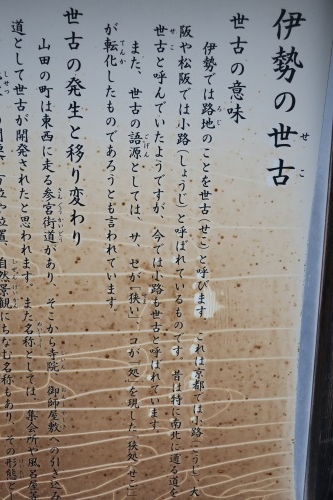 伊勢の世古
せこ
世古の意味
伊勢では路地のことを世古(せこ)と呼びます。これは京都では小路(こうじ)、大
ろじ
阪や松阪では小路(しょうじ)と呼ばれているものです。昔は特に南北に通る道を
世古と呼んでいたようですが、今では小路も世古と呼ばれています。
せこ
また、世古の語源としては、サ、セが「狭い」、コが「処」を現した「狭処(せこ)」
ごげん
が転化したものであろうとも言われています。
てんか
世古の発生と移り変わり
山田の町は東西に走る参宮街道があり、そこから寺院、御師屋敷への引き込み
さんぐうかいどう
道として世古が開発されたと思われます。また名称としては、集会所や風呂屋等
しせつ
位置、自然景観にちなむ名称もあり、その形態と